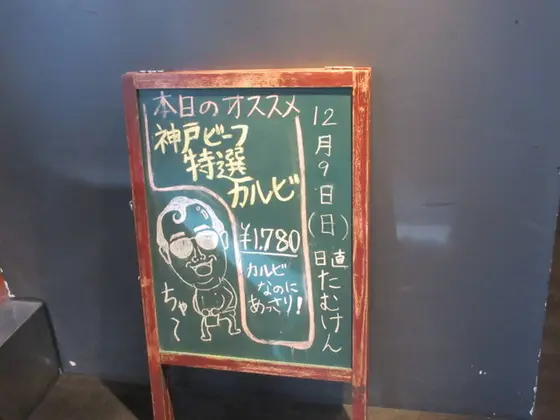 本日のオススメ
神戸ビーフ
特選
カルビ
¥1.780
カルビ
なのに
あっさり!
ちゅ〜
12月9日(日)
日直
たむけん